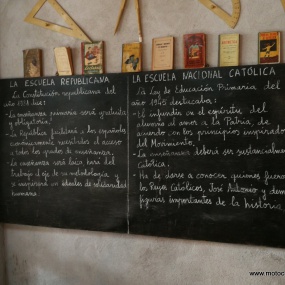 LA ESCUELA REPUBLICANA
La Constitución republicana del
año 1931 dice:
- La enseñanza primaria será gratuita
obligatoria.
- La República facilitará a los españoles
económicamente necesitados el acceso
a todos los grados de enseñanza.
- La enseñanza será laica hará del
trabajo el eje de su metodología y
se inspirará en ideales de solidaridad
humana.
LA ESCUELA NACIONAL CATÓLICA
La Ley de Educación Primaria del
año 1945 destacaba:
- Se infundirá en el espíritu del
alumno el amor a la Patria, de
acuerdo con los principios inspirados
del Movimiento.
- La enseñanza deberá ser sustancialmente
Católica.
- Ha de darse a conocer quienes fueron
los Reyes Católicos, José Antonio y demás
figuras importantes de la historia
www.motoc